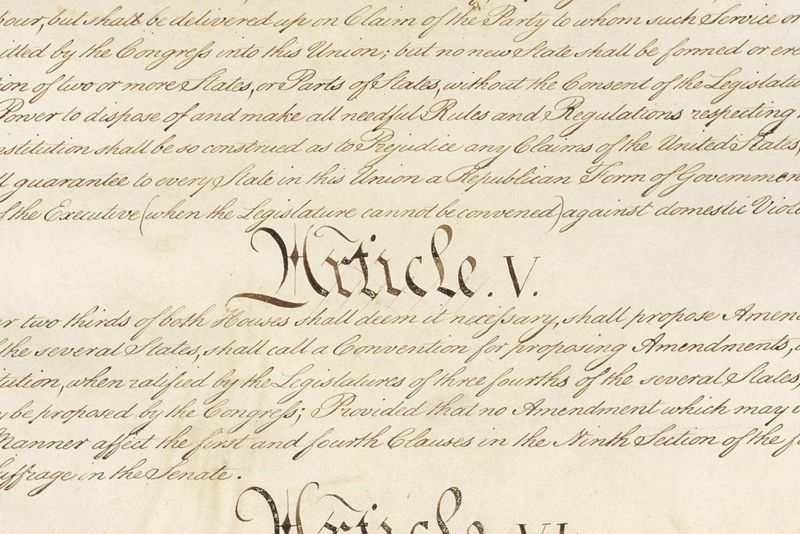 our, but shall be delivered up on Claim of the Party to whom such Service or
itted by the Congress into this Union; but no new State shall be formed or ere
tion of two or more States, or Parts of States, without the Consent of the Legislatu
Power to dispose of and make all needful Rules and Regulations respecting
nstitution shall be so construed as to Prejudice any Claims of the United States,
ll guarantee to every State in this Union a Republican Form of Governmen
of the Executive (when the Legislature cannot be convened) against domestic Viol
Article. V.
er two thirds of both Houses shall deem it necessary, shall propose Amen
f the several States, shall call a Convention for proposing Amendments,
titution, when ratified by the Legislatures of three fourths of the several States,
y be proposed by the Congress; Provided that no Amendment which may
Manner affect the first and fourth Clauses in the Ninth Section of the f
uffrage in the Senate.
Article. VI.